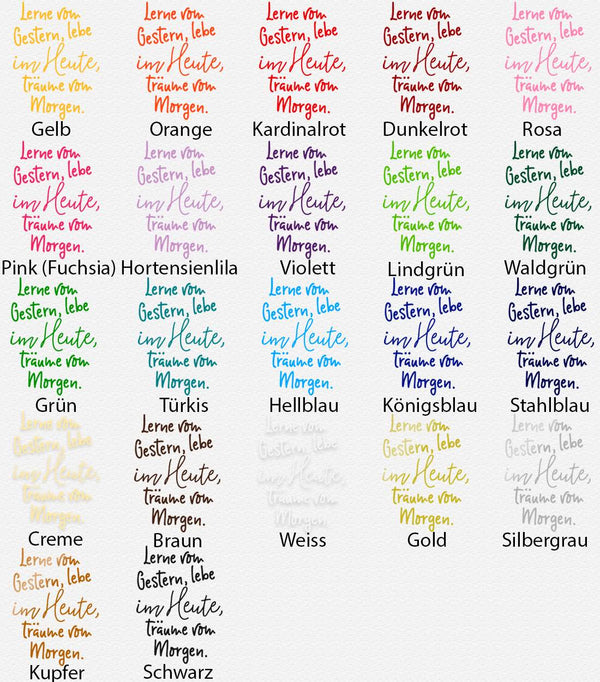 Lerne vom
Gestern, lebe
im Heute,
träume vom
Morgen.
Gelb
Lerne vom
Gestern, lebe
im Heute,
träume vom
Morgen.
Orange
Lerne vom
Gestern, lebe
im Heute,
träume vom
Morgen.
Kardinalrot
Lerne vom
Gestern, lebe
im Heute,
träume vom
Morgen.
Dunkelrot
Lerne vom
Gestern, lebe
im Heute,
träume vom
Morgen.
Rosa
Lerne vom
Gestern, lebe
im Heute,
träume vom
Morgen.
Pink (Fuchsia)
Lerne vom
Gestern, lebe
im Heute,
träume vom
Morgen.
Hortensienlila
Lerne vom
Gestern, lebe
im Heute,
träume vom
Morgen.
Violett
Lerne vom
Gestern, lebe
im Heute,
träume vom
Morgen.
Lindgrün
Lerne vom
Gestern, lebe
im Heute,
träume vom
Morgen.
Waldgrün
Lerne vom
Gestern, lebe
im Heute,
träume vom
Morgen.
Grün
Lerne vom
Gestern, lebe
im Heute,
träume vom
Morgen.
Türkis
Lerne vom
Gestern, lebe
im Heute,
träume vom
Morgen.
Hellblau
Lerne vom
Gestern, lebe
im Heute,
träume vom
Morgen.
Königsblau
Lerne vom
Gestern, lebe
im Heute,
träume vom
Morgen.
Stahlblau
Lerne vom
Gestern, lebe
im Heute,
träume vom
Morgen.
Creme
Lerne vom
Gestern, lebe
im Heute,
träume vom
Morgen.
Braun
Lerne vom
Gestern, lebe
im Heute,
träume vom
Morgen.
Weiss
Lerne vom
Gestern, lebe
im Heute,
träume vom
Morgen.
Gold
Lerne vom
Gestern, lebe
im Heute,
träume vom
Morgen.
Silbergrau
Lerne vom
Gestern, lebe
im Heute,
träume vom
Morgen.
Kupfer
Lerne vom
Gestern, lebe
im Heute,
träume vom
Morgen.
Schwarz